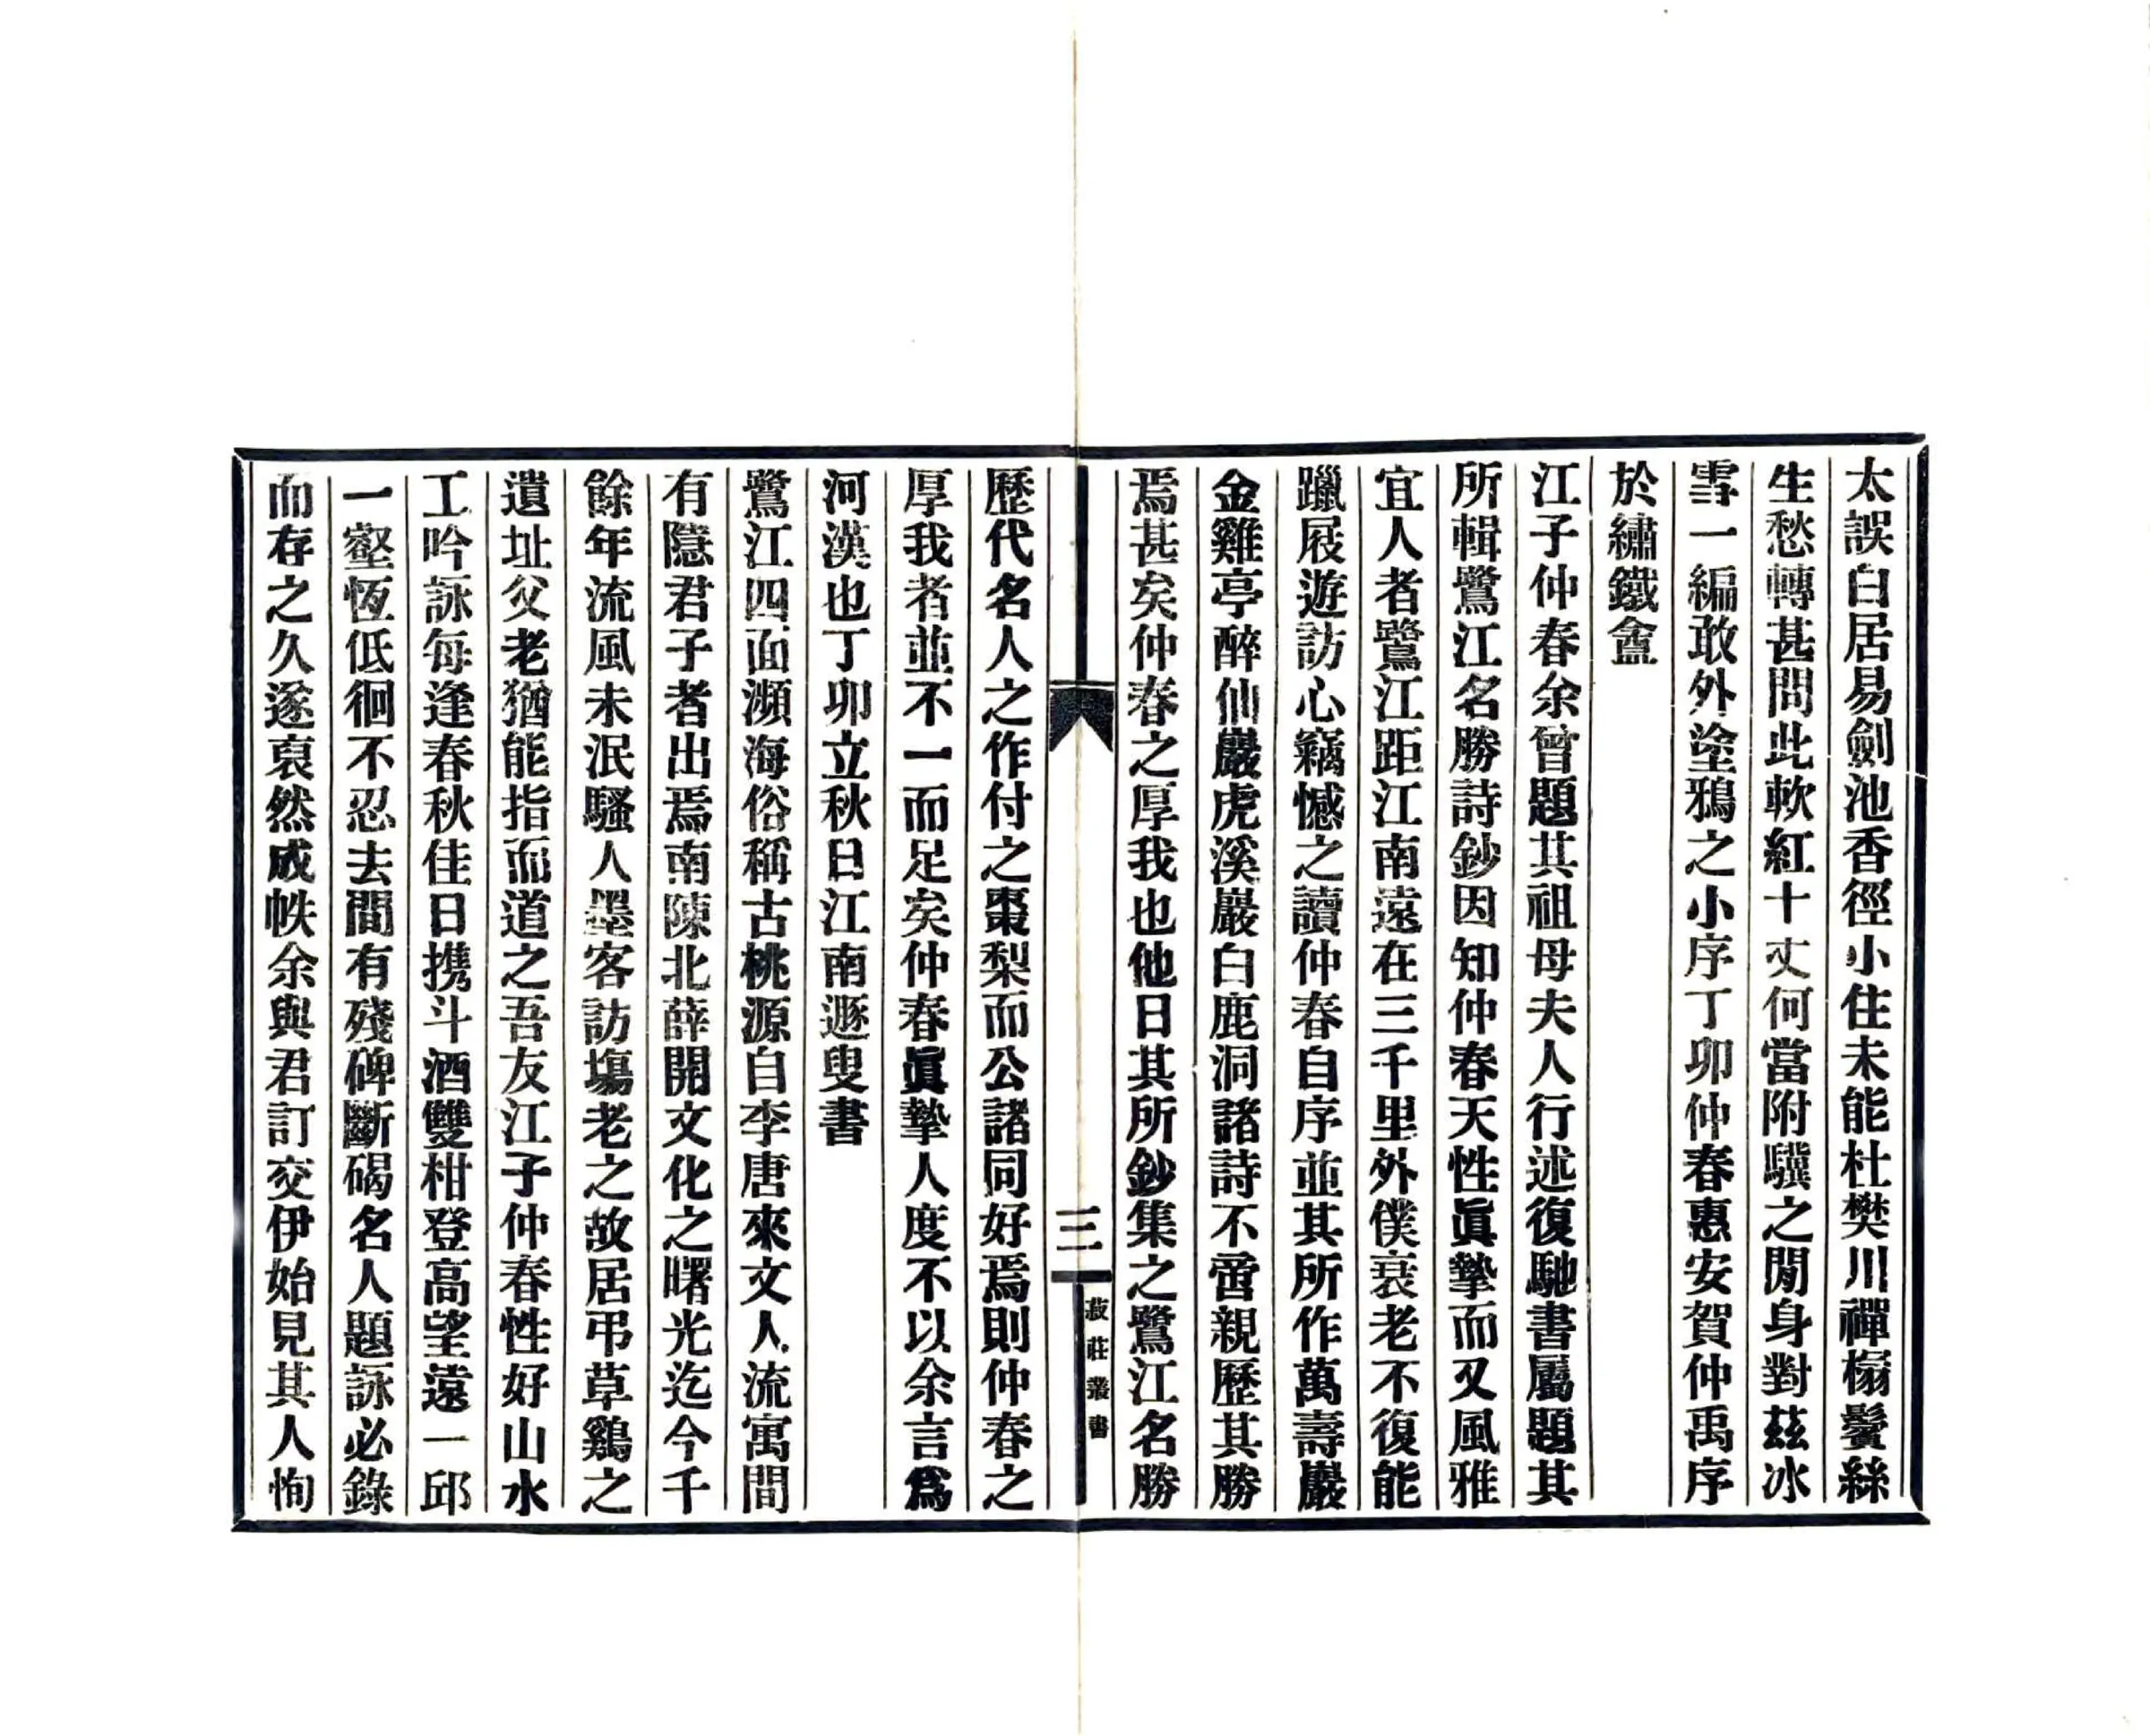 太誤白居易劍池香徑小住未能杜樊川禪榻鬢絲
生愁轉甚問此軟紅十丈何當附驥之閒身對茲冰
雪一編敢外塗鴉之小序丁卯仲春惠安賀仲禹序
於繡鐵盦
江子仲春余曾題其祖母夫人行述復馳書屬題其
所輯鷺江名勝詩鈔因知仲春天性眞摯而又風雅
宜人者鷺江距江南遠在三千里外僕衰老不復能
躡屐遊訪心竊憾之讀仲春自序並其所作萬壽巖
金雞亭醉仙巖虎溪巖白鹿洞諸詩不啻親歷其勝
焉甚矣仲春之厚我也他日其所鈔集之鷺江名勝
三
菽莊叢書
歷代名人之作付之棗梨而公諸同好焉則仲春之
厚我者並不一而足矣仲春眞摯人度不以余言爲
河漢也丁卯立秋日江南遯叟書
鷺江四面瀕海俗稱古桃源自李唐來文人流寓間
有隱君子者出焉南陳北薛開文化之曙光迄今千
餘年流風未泯騷人墨客訪塲老之故居弔草鷄之
遺址父老猶能指而道之吾友江子仲春性好山水
工吟詠每逢春秋佳日携斗酒雙柑登高望遠一邱
一壑恆低徊不忍去間有殘碑斷碣名人題詠必錄
而存之久遂裒然成帙余與君訂交伊始見其人恂